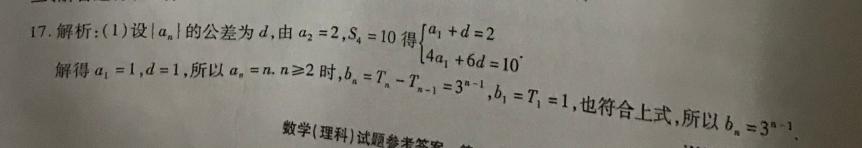 17.解析:(1)设{aₙ}的公差为d,由a₂=2,S₄=10得{a₁+d=2
4a₁+6d=10.
解得a₁=1,d=1,所以aₙ=n.n≥2时,bₙ=Tₙ-Tₙ₋₁=3ⁿ⁻¹,b₁=T₁=1,也符合上式,所以bₙ=3ⁿ⁻¹.
数学(理科)试题参考答案